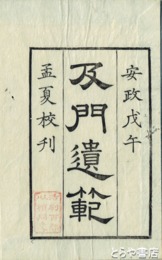 安政戊午
及門遺範
孟夏校刋
とらや書店